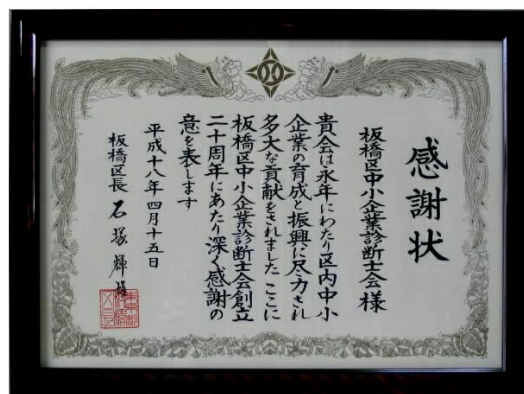 感謝状
板橋区中小企業診断士会様
貴会は永年にわたり区内中小
企業の育成と振興に尽力され
多大な貢献をされました ここに
板橋区中小企業診断士会創立
二十周年にあたり深く感謝の
意を表します
平成十八年四月十五日
板橋区長 石塚輝雄